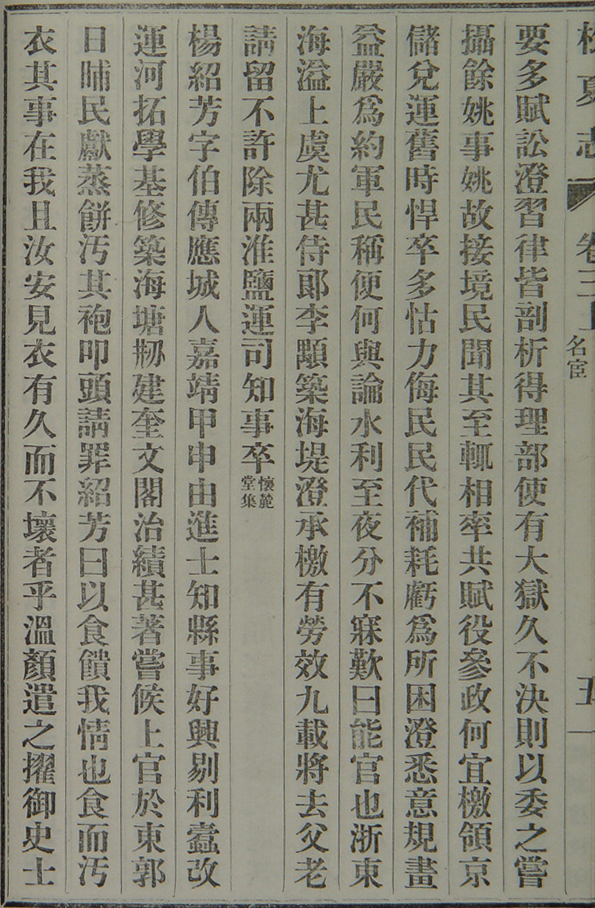 夏志 卷三上 名宦 五
要多賦訟澄習律皆剖析得理部使有大獄久不決則以委之嘗
攝餘姚事姚故接境民聞其至輒相率共賦役參政何宜檄領京
儲兌運舊時悍卒多怙力侮民民代補耗虧爲所困澄悉意規畫
益嚴爲約軍民稱便何與論水利至夜分不寐歎曰能官也浙東
海溢上虞尤甚侍郎李顒築海堤澄承檄有勞效九載將去父老
請留不許除兩淮鹽運司知事卒懷麓堂集
楊紹芳字伯傳應城人嘉靖甲申由進士知縣事好興剔利蠹改
運河拓學基修築海塘剏建奎文閣治績甚著嘗候上官於東郭
日晡民獻蒸餅汚其袍叩頭請罪紹芳曰以食饋我情也食而汚
衣其事在我且汝安見衣有久而不壞者乎溫顏遣之擢御史士